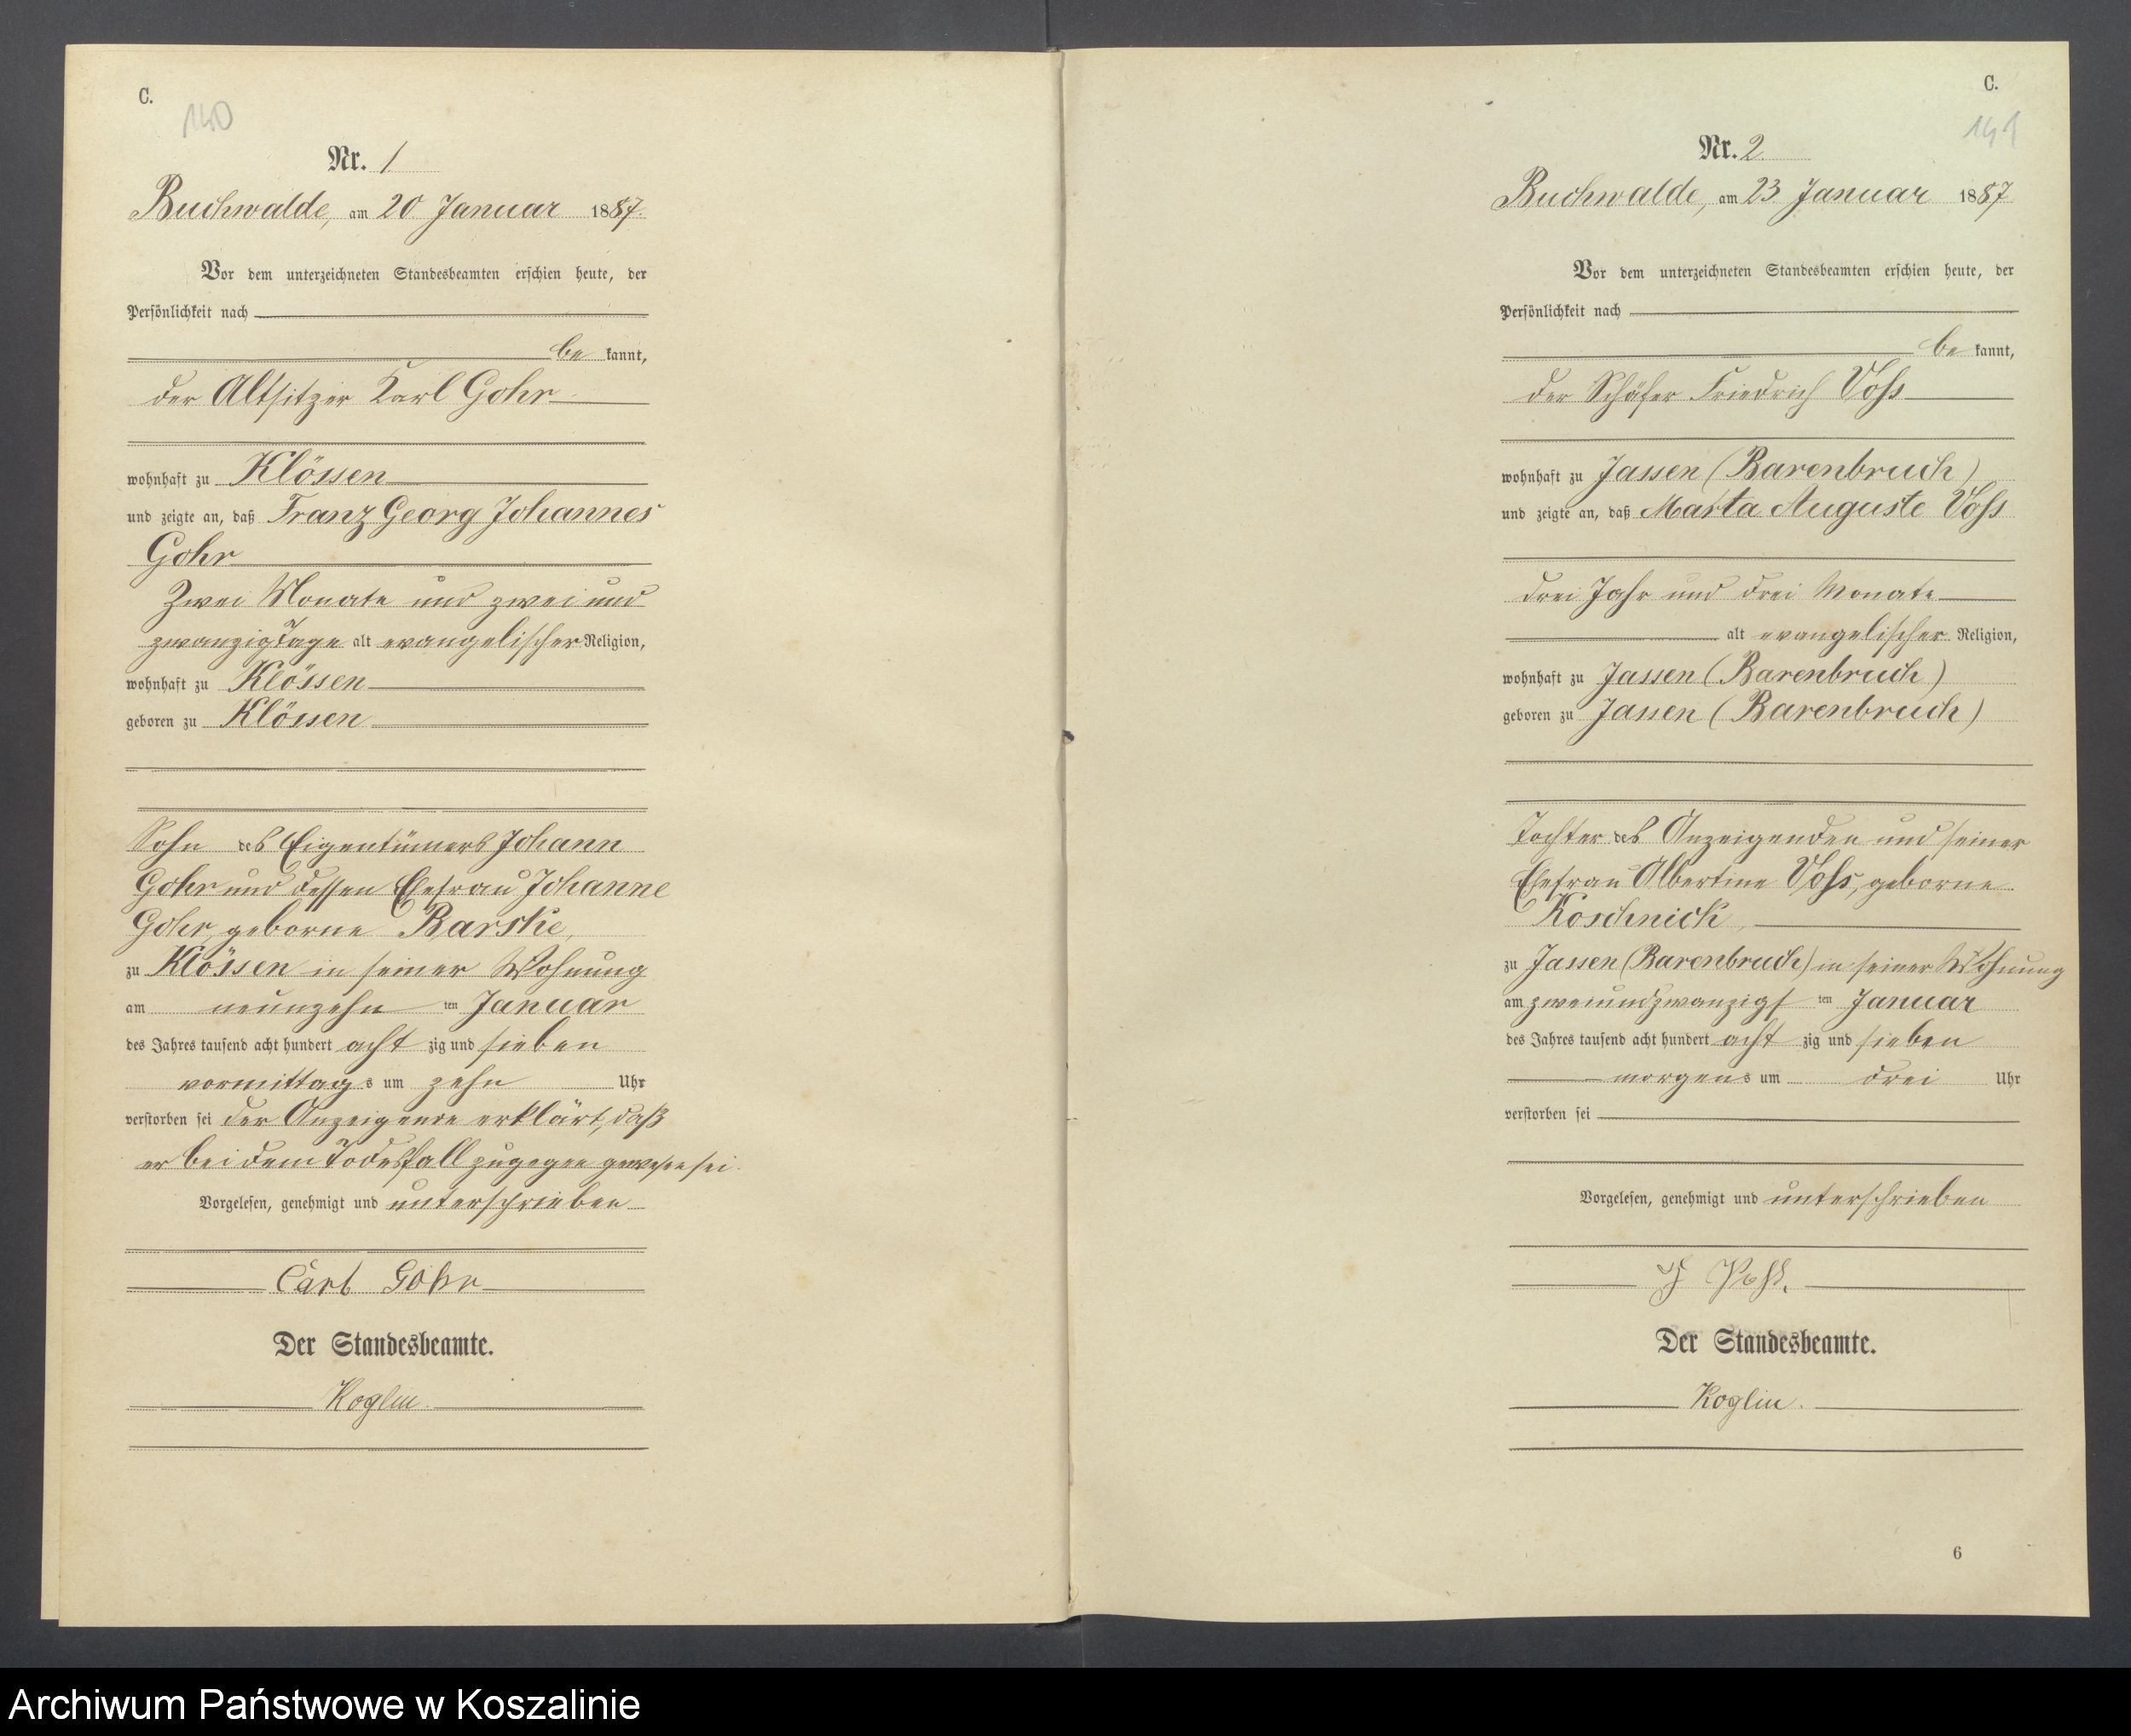 C.
140
Nr. 1
Buchwalde, am 20 Januar 1887.
Vor dem unterzeichneten Standesbeamten erschien heute, der
Persönlichkeit nach
be kannt,
der Altsitzer Karl Gohr
wohnhaft zu Klössen
und zeigte an, daß Franz Georg Johannes
Gohr
Zwei Monate und zwei und
zwanzig Tage alt evangelischer Religion,
wohnhaft zu Klössen
geboren zu Klössen
Sohn des Eigentümers Johann
Gohr und dessen Ehefrau Johanne
Gohr, geborne Barske,
zu Klössen in seiner Wohnung
am neunzehn ten Januar
des Jahres tausend acht hundert acht zig und sieben
vormittag s um zehn Uhr
verstorben sei der Anzeigende erklärt, daß
er bei dem Todesfall zugegen gewesen sei.
Vorgelesen, genehmigt und unterschrieben
Carl Gohr
Der Standesbeamte.
Koglin.
C.
141
Nr. 2
Buchwalde, am 23 Januar 1887
Vor dem unterzeichneten Standesbeamten erschien heute, der
Persönlichkeit nach
be kannt,
der Schäfer Friedrich Voß
wohnhaft zu Jassen (Barenbruch)
und zeigte an, daß Marta Auguste Voß
drei Jahr und drei Monate
alt evangelischer Religion,
wohnhaft zu Jassen (Barenbruch)
geboren zu Jassen (Barenbruch)
Tochter des Anzeigenden und seiner
Ehefrau Albertine Voß, geborne
Koschnick,
zu Jassen (Barenbruch) in seiner Wohnung
am zweiundzwanzigs ten Januar
des Jahres tausend acht hundert acht zig und sieben
morgens um drei Uhr
verstorben sei
Vorgelesen, genehmigt und unterschrieben
Der Standesbeamte.
Koglin.
6
Archiwum Państwowe w Koszalinie